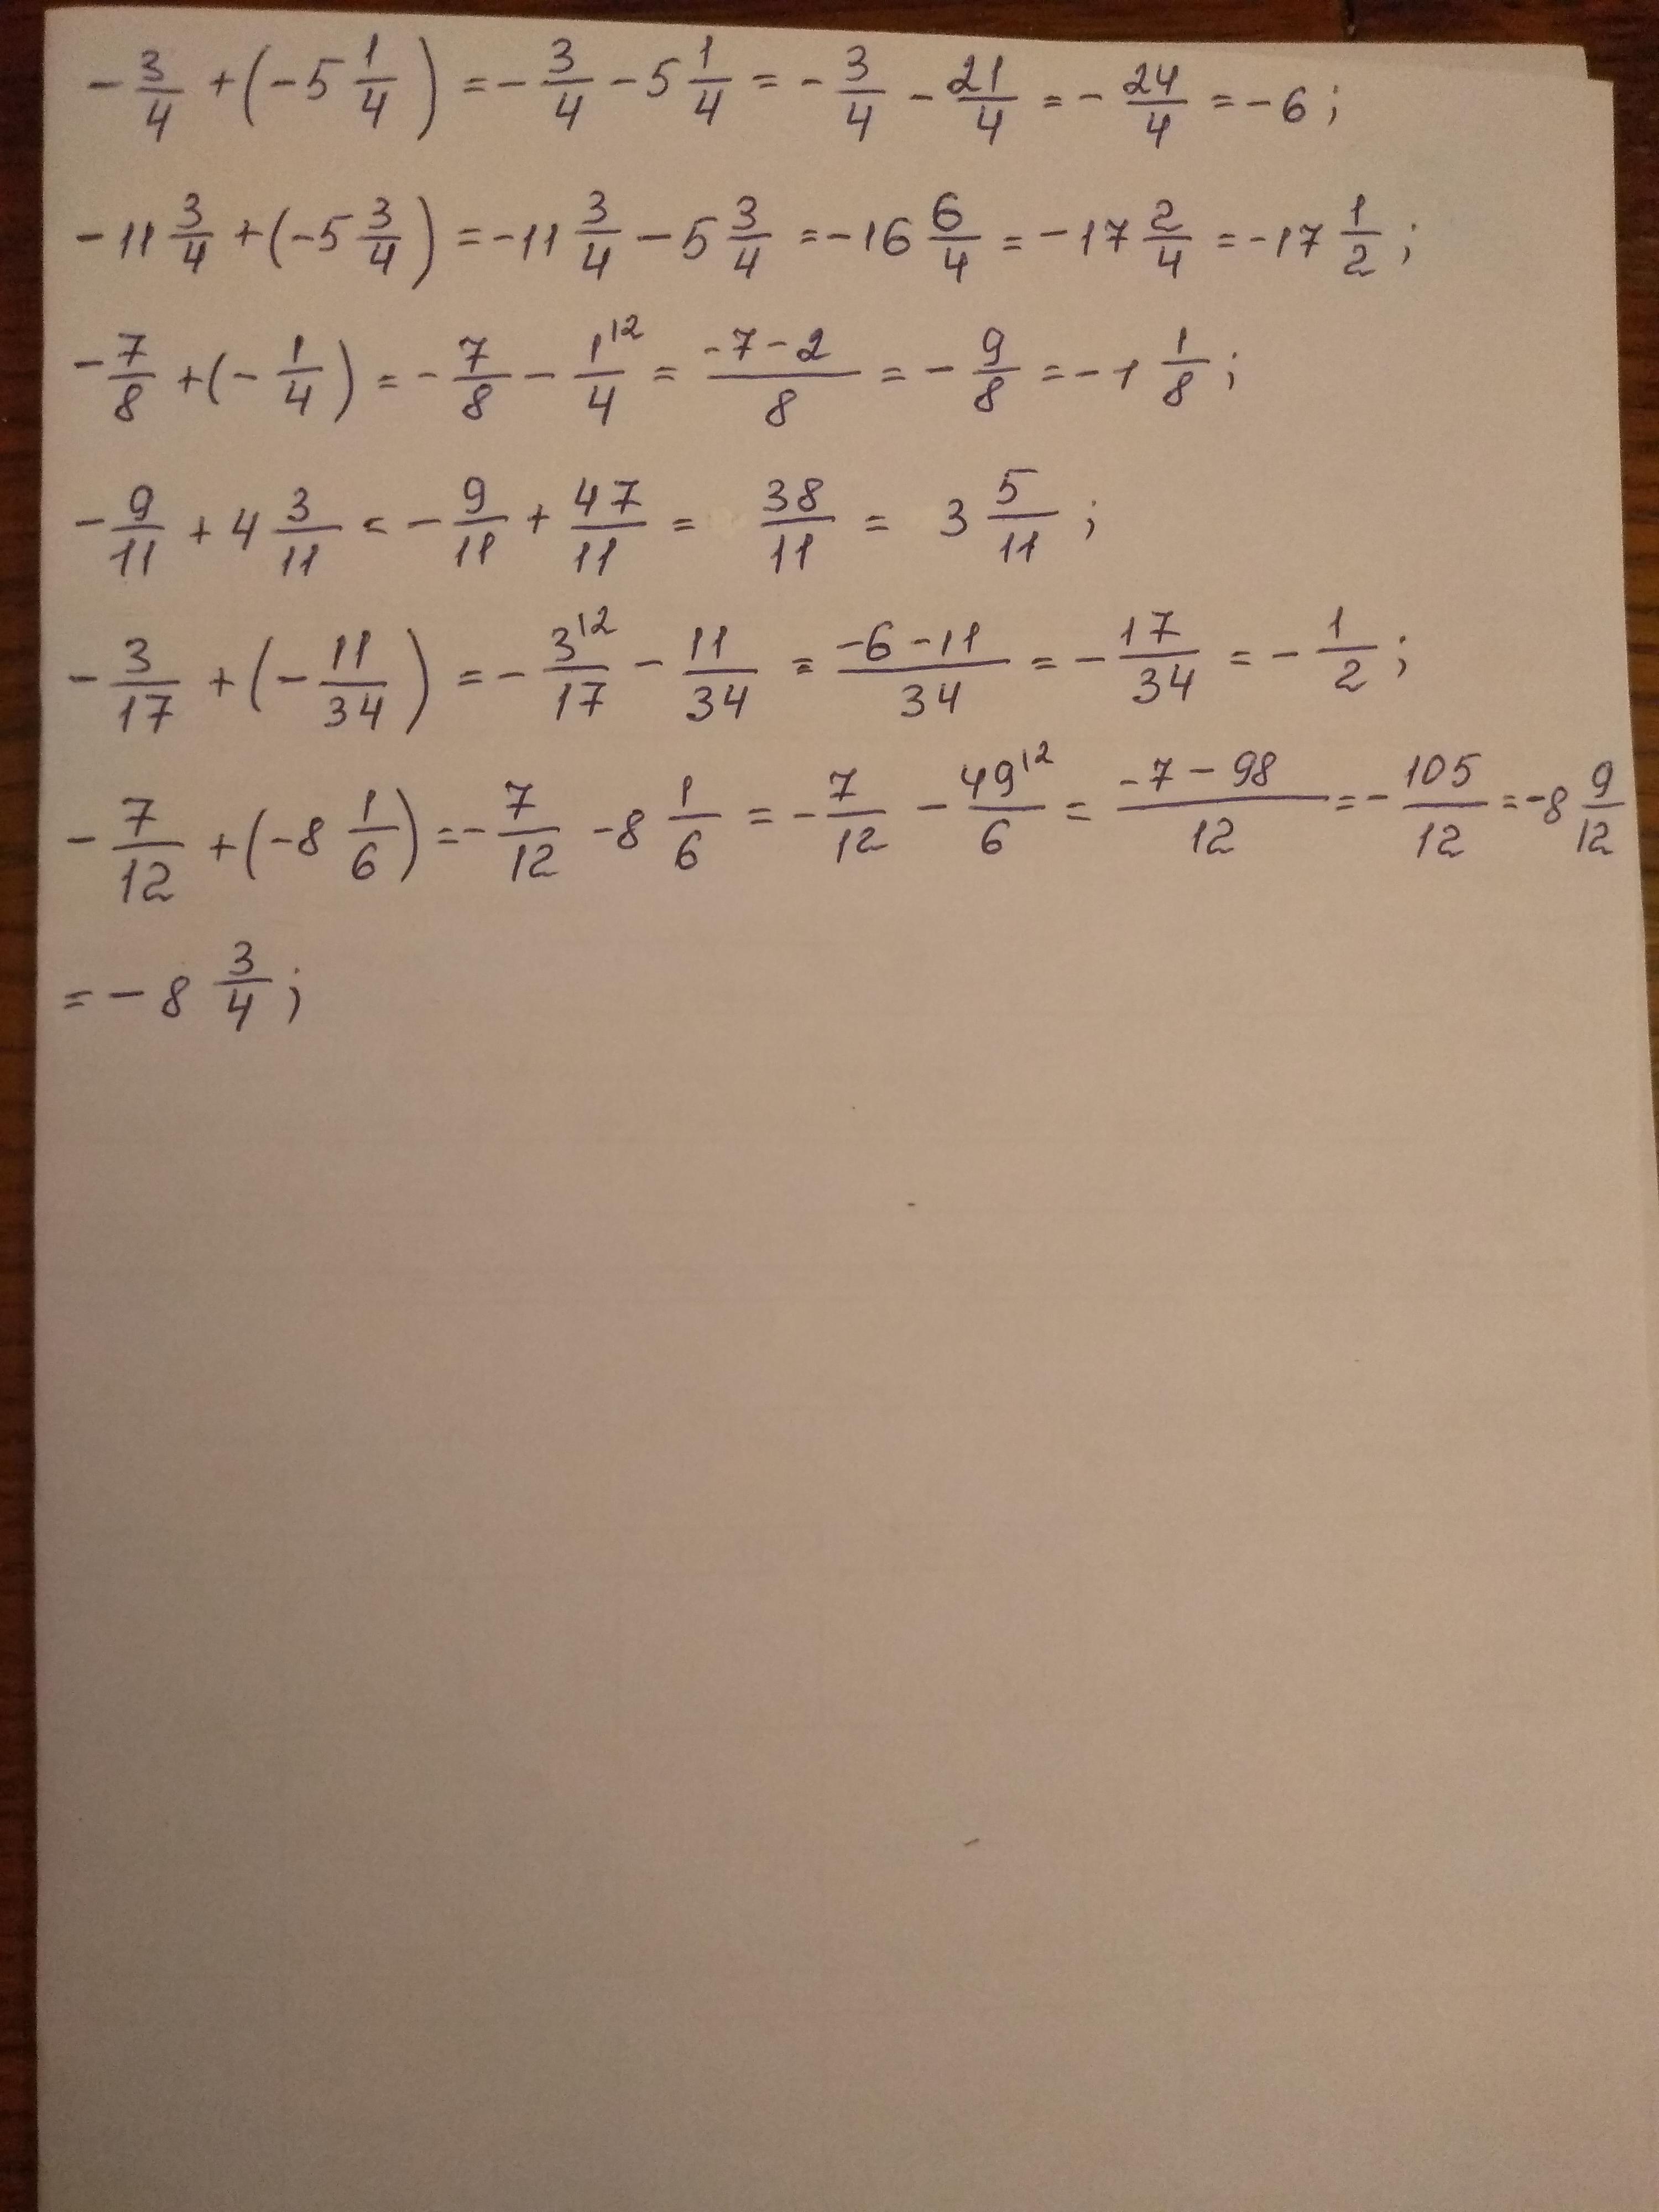 -3/4 + (-5 1/4) = -3/4 - 5 1/4 = -3/4 - 21/4 = -24/4 = -6;
-11 3/4 + (-5 3/4) = -11 3/4 - 5 3/4 = -16 6/4 = -17 2/4 = -17 1/2;
-7/8 + (-1/4) = -7/8 - 1^{|2}/4 = (-7-2)/8 = -9/8 = -1 1/8;
-9/11 + 4 3/11 = -9/11 + 47/11 = 38/11 = 3 5/11;
-3/17 + (-11/34) = -3^{|2}/17 - 11/34 = (-6-11)/34 = -17/34 = -1/2;
-7/12 + (-8 1/6) = -7/12 - 8 1/6 = -7/12 - 49^{|2}/6 = (-7-98)/12 = -105/12 = -8 9/12
= -8 3/4;